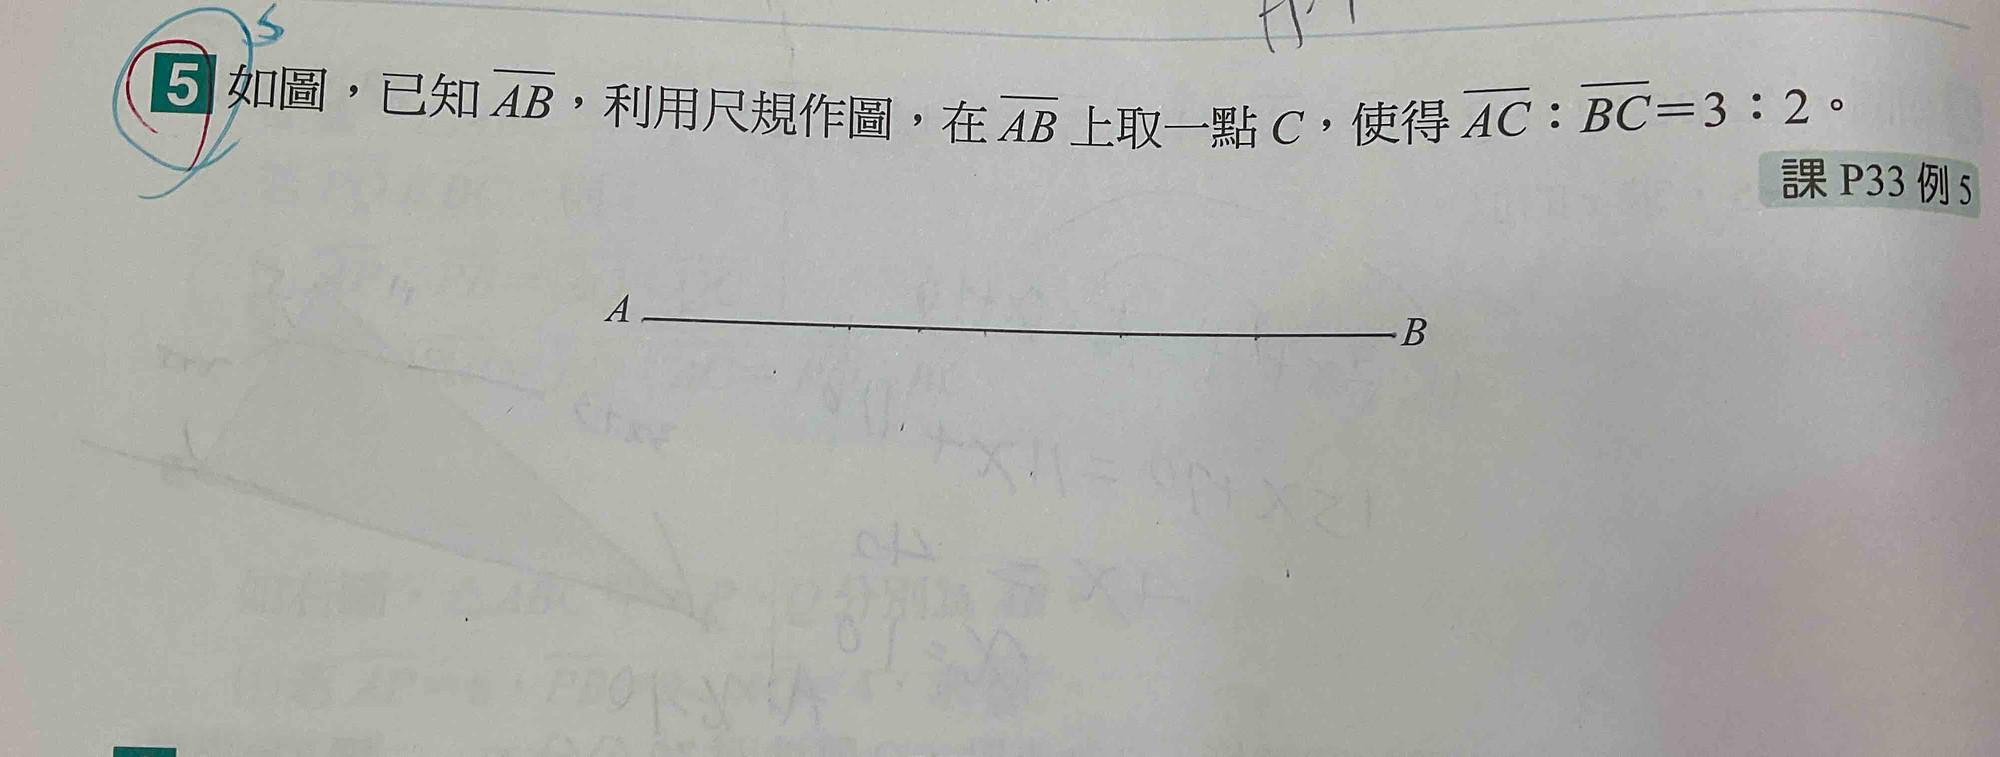 5 如圖，已知 AB，利用尺規作圖，在 AB 上取一點 C，使得 AC：BC＝3：2。
課 P33 例 5
A B